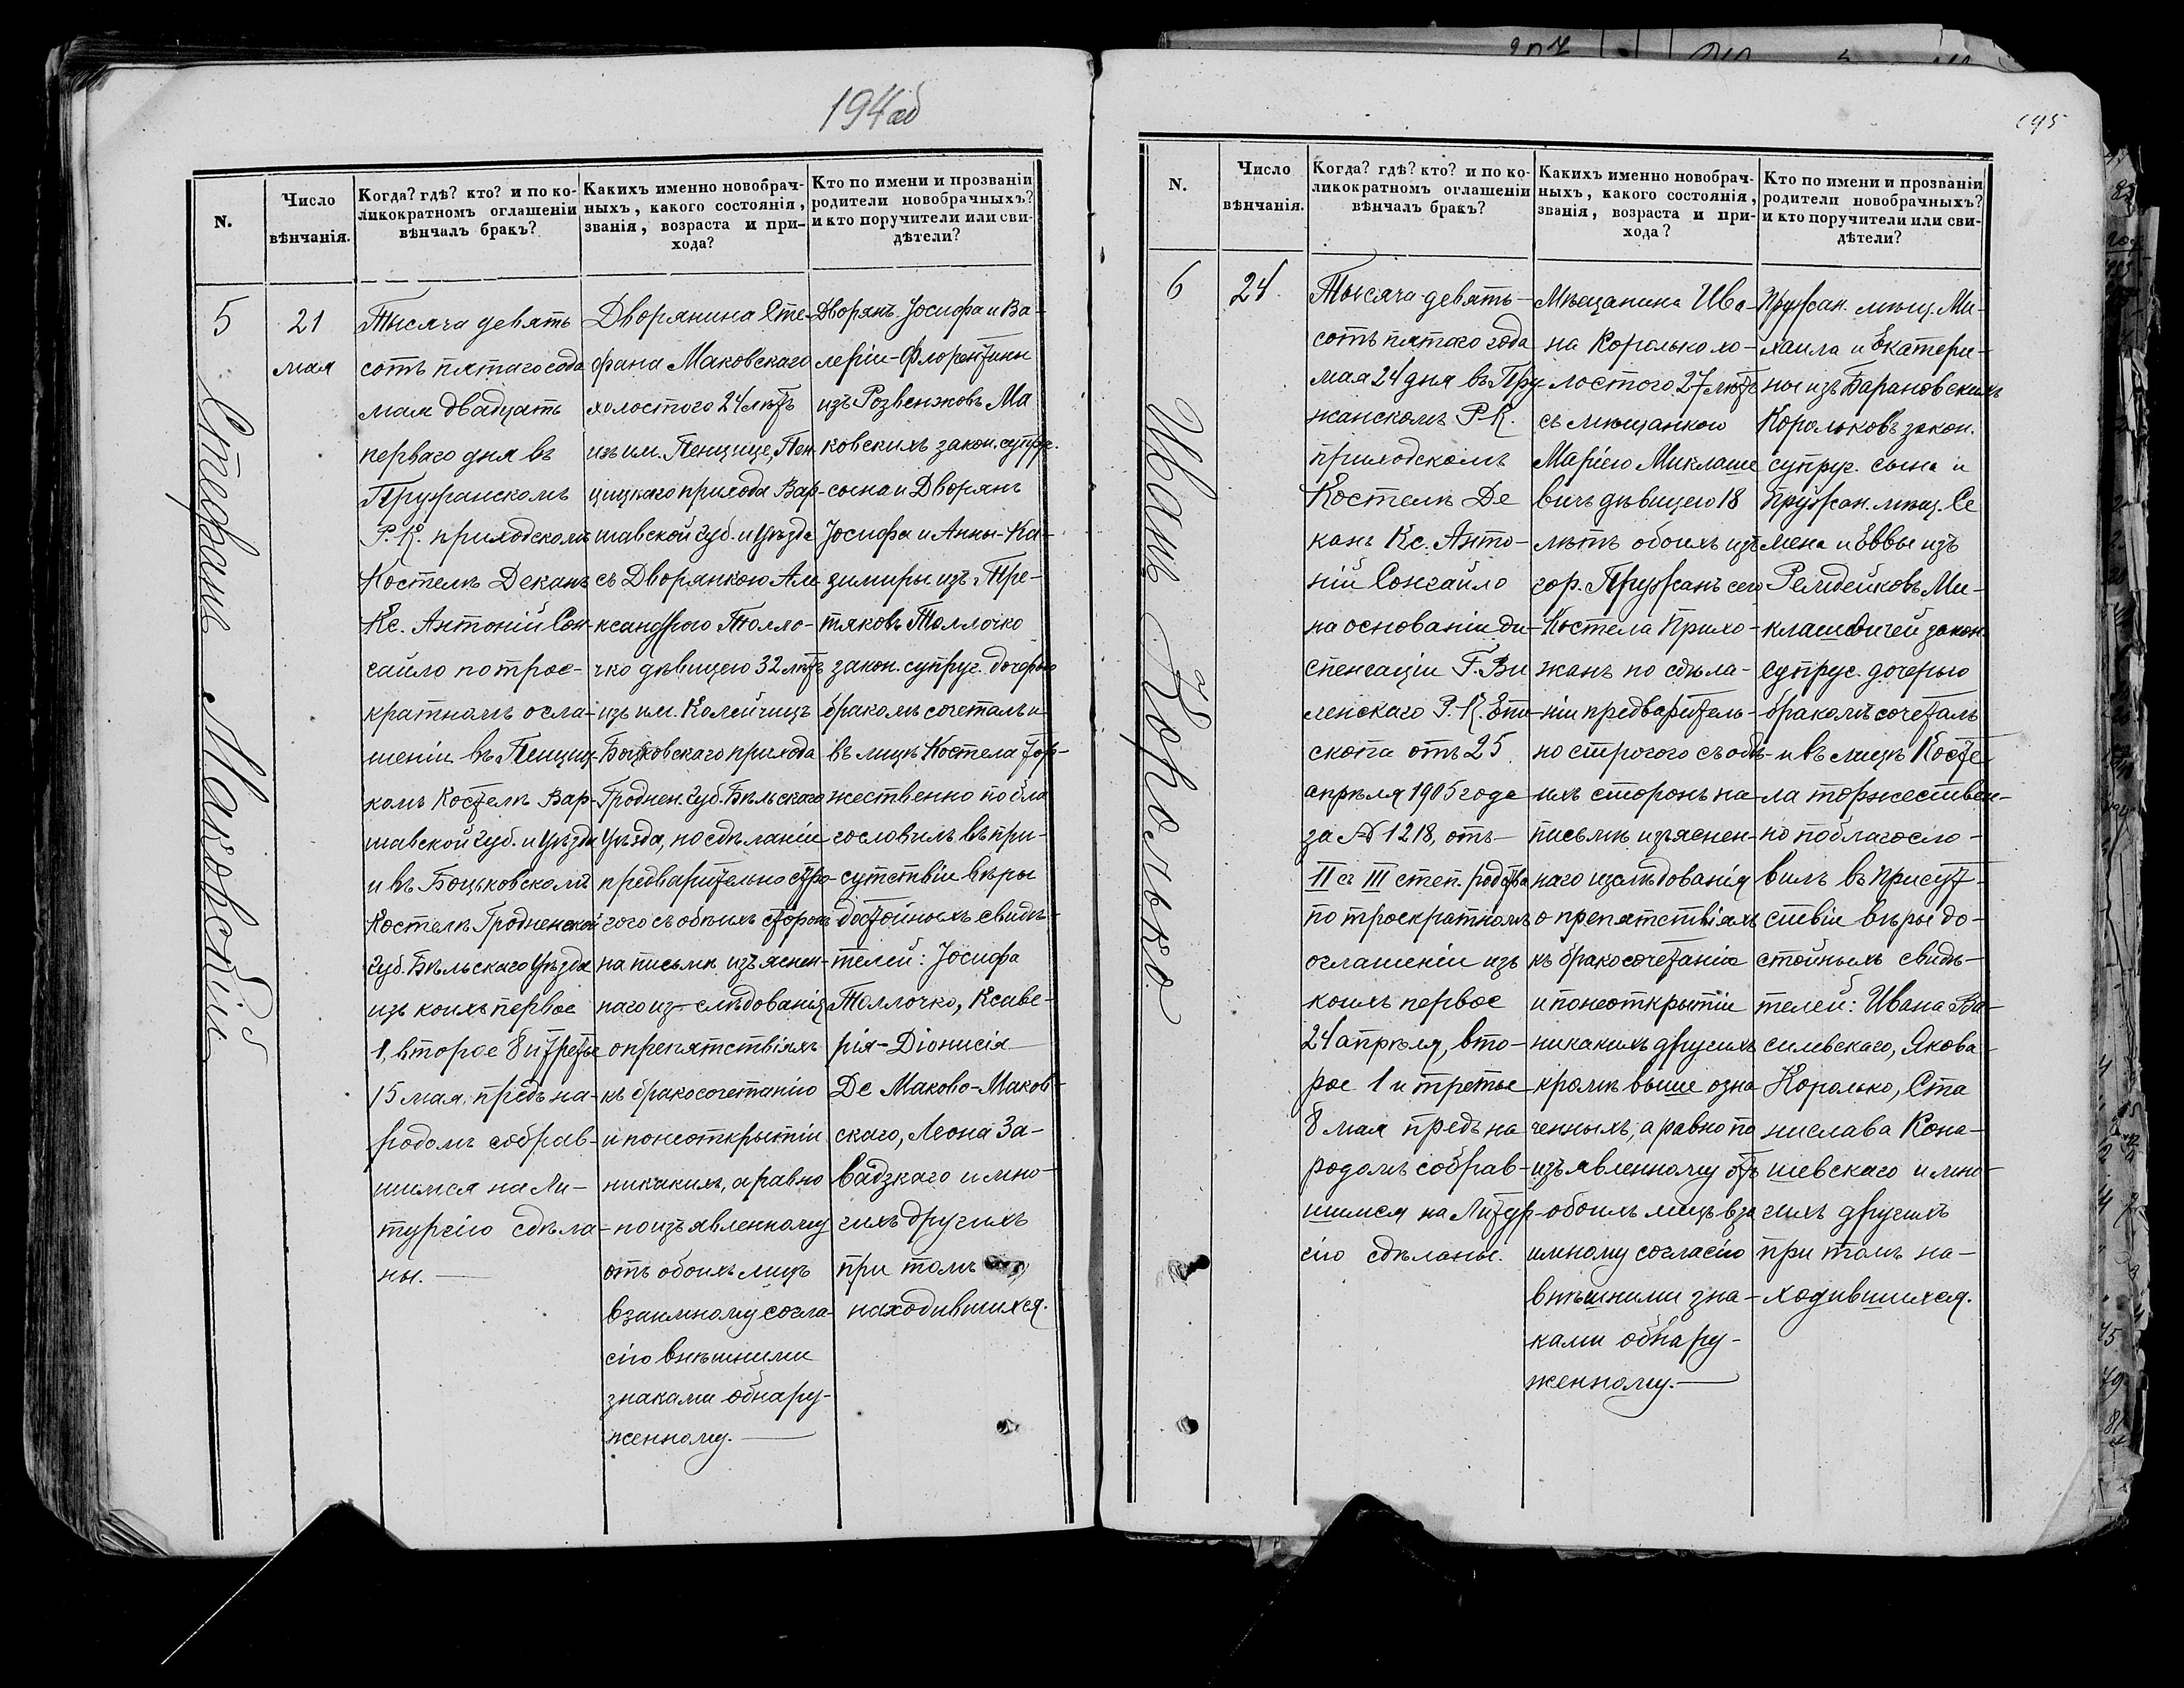 194об
N.
Число
вѣнчанія.
Когда? гдѣ? кто? и по ко-
ликократномъ оглашеніи
вѣнчалъ бракъ?
Какихъ именно новобрач-
ныхъ, какого состоянія,
званія, возраста и при-
хода?
Кто по имени и прозваніи
родители новобрачныхъ?
и кто поручители или сви-
дѣтели?
5
21
мая
Стефанъ Маковскій
Тысяча девять
сотъ пятаго года
мая двадцать
перваго дня въ
Пружанскомъ
Р. К. приходскомъ
Костелѣ Деканъ
Кс. Антоній Сон-
гайло по трое-
кратномъ огла-
шеніи въ Пенциц-
комъ Костелѣ Вар-
шавской губ. и уѣзда
и въ Боцьковскомъ
Костелѣ Гродненской
губ. Бѣльскаго уѣзда
изъ коихъ первое
1, второе 8 и третье
15 мая, предъ на-
родомъ собрав-
шимся на Ли-
тургію сдѣла-
ны.
Дворянина Сте-
фана Маковскаго
холостого 24 лѣтъ
изъ им. Пенцице, Пен-
цицкаго прихода Вар-
шавской губ. и уѣзда
съ Дворянкою Але
ксандрою Толло-
чко дѣвицею 32 лѣтъ
изъ им. Колейчицъ
Боцьковскаго прихода
Гроднен. губ. Бѣльскаго
уѣзда, по сдѣланіи
предварительно стро-
гого съ обѣихъ сторонъ
на письмѣ изъяснен-
наго из-слѣдованія
о препятствіяхъ
къ бракосочетанію
и по неоткрытіи
никакихъ, а равно
по изъявленному
отъ обоихъ лицъ
взаимному согла-
сію внѣшними
знаками обнару-
женному.
Дворянъ Іосифа и Ва-
леріи-Флорентины
изъ Розвенковъ Ма
ковскихъ закон. супруг.
сына и Дворянъ
Іосифа и Анны-Ка-
зимиры изъ Тре-
тяковъ Толлочко
закон. супруг. дочерью
бракомъ сочеталъ и
въ лицѣ Костела тор-
жественно побла
гословилъ въ при-
сутствіи вѣры
достойныхъ свидѣ-
телей: Іосифа
Толлочко, Ксаве-
рія-Діонисія
Де Маково-Маков-
скаго, Леона За-
вадзкаго и мно-
гихъ другихъ
при томъ
находившихся.
195
N.
Число
вѣнчанія.
Когда? гдѣ? кто? и по ко-
ликократномъ оглашеніи
вѣнчалъ бракъ?
Какихъ именно новобрач-
ныхъ, какого состоянія,
званія, возраста и при-
хода?
Кто по имени и прозваніи
родители новобрачныхъ?
и кто поручители или сви-
дѣтели?
6
24.
Иванъ Королько
Тысяча девять-
сотъ пятаго года
мая 24 дня въ Пру-
жанскомъ Р-К.
приходскомъ
Костелѣ Де
канъ Кс. Анто-
ній Сонгайло
на основаніи ди-
спенсаціи Г. Ви
ленскаго Р. К. Епи-
скопа отъ 25
апрѣля 1905 года
за № 1218, отъ
II съ III степ. родства
по троекратномъ
оглашеніи изъ
коихъ первое
24 апрѣля, вто-
рое 1 и третье
8 мая предъ на
родомъ собрав-
шимся на Литур-
гію сдѣланы.
Мѣщанина Ива-
на Королько хо-
лостого 27 лѣтъ
съ мѣщанкою
Маріею Миклаше
вичъ дѣвицею 18
лѣтъ обоихъ изъ
гор. Пружанъ сего
Костела Прихо-
жанъ по сдѣла-
ніи предваритель-
но строгого съ обѣ-
ихъ сторонъ на
письмѣ изъяснен-
наго изслѣдованія
о препятствіяхъ
къ бракосочетанію
и по неоткрытіи
никакихъ другихъ
кромѣ выше озна
ченныхъ, а равно по
изъявленному отъ
обоихъ лицъ вза
имному согласію
внѣшними зна-
ками обнару-
женному.
Пружан. мѣщ. Ми-
хаила и Екатери-
ны изъ Барановскихъ
Корольковъ закон.
супруг. сына и
Пружан. мѣщ. Се
мена и Еввы изъ
Ремдейковъ Ми-
клашевичей закон.
супруг. дочерью
бракомъ сочеталъ
и въ лицѣ Косте-
ла торжествен-
но поблагосло-
вилъ въ присут-
ствіи вѣры до-
стойныхъ свидѣ-
телей: Ивана Ва-
силевскаго, Якова
Королько, Ста
нислава Кона-
шевскаго и мно-
гихъ другихъ
при томъ на-
ходившихся.